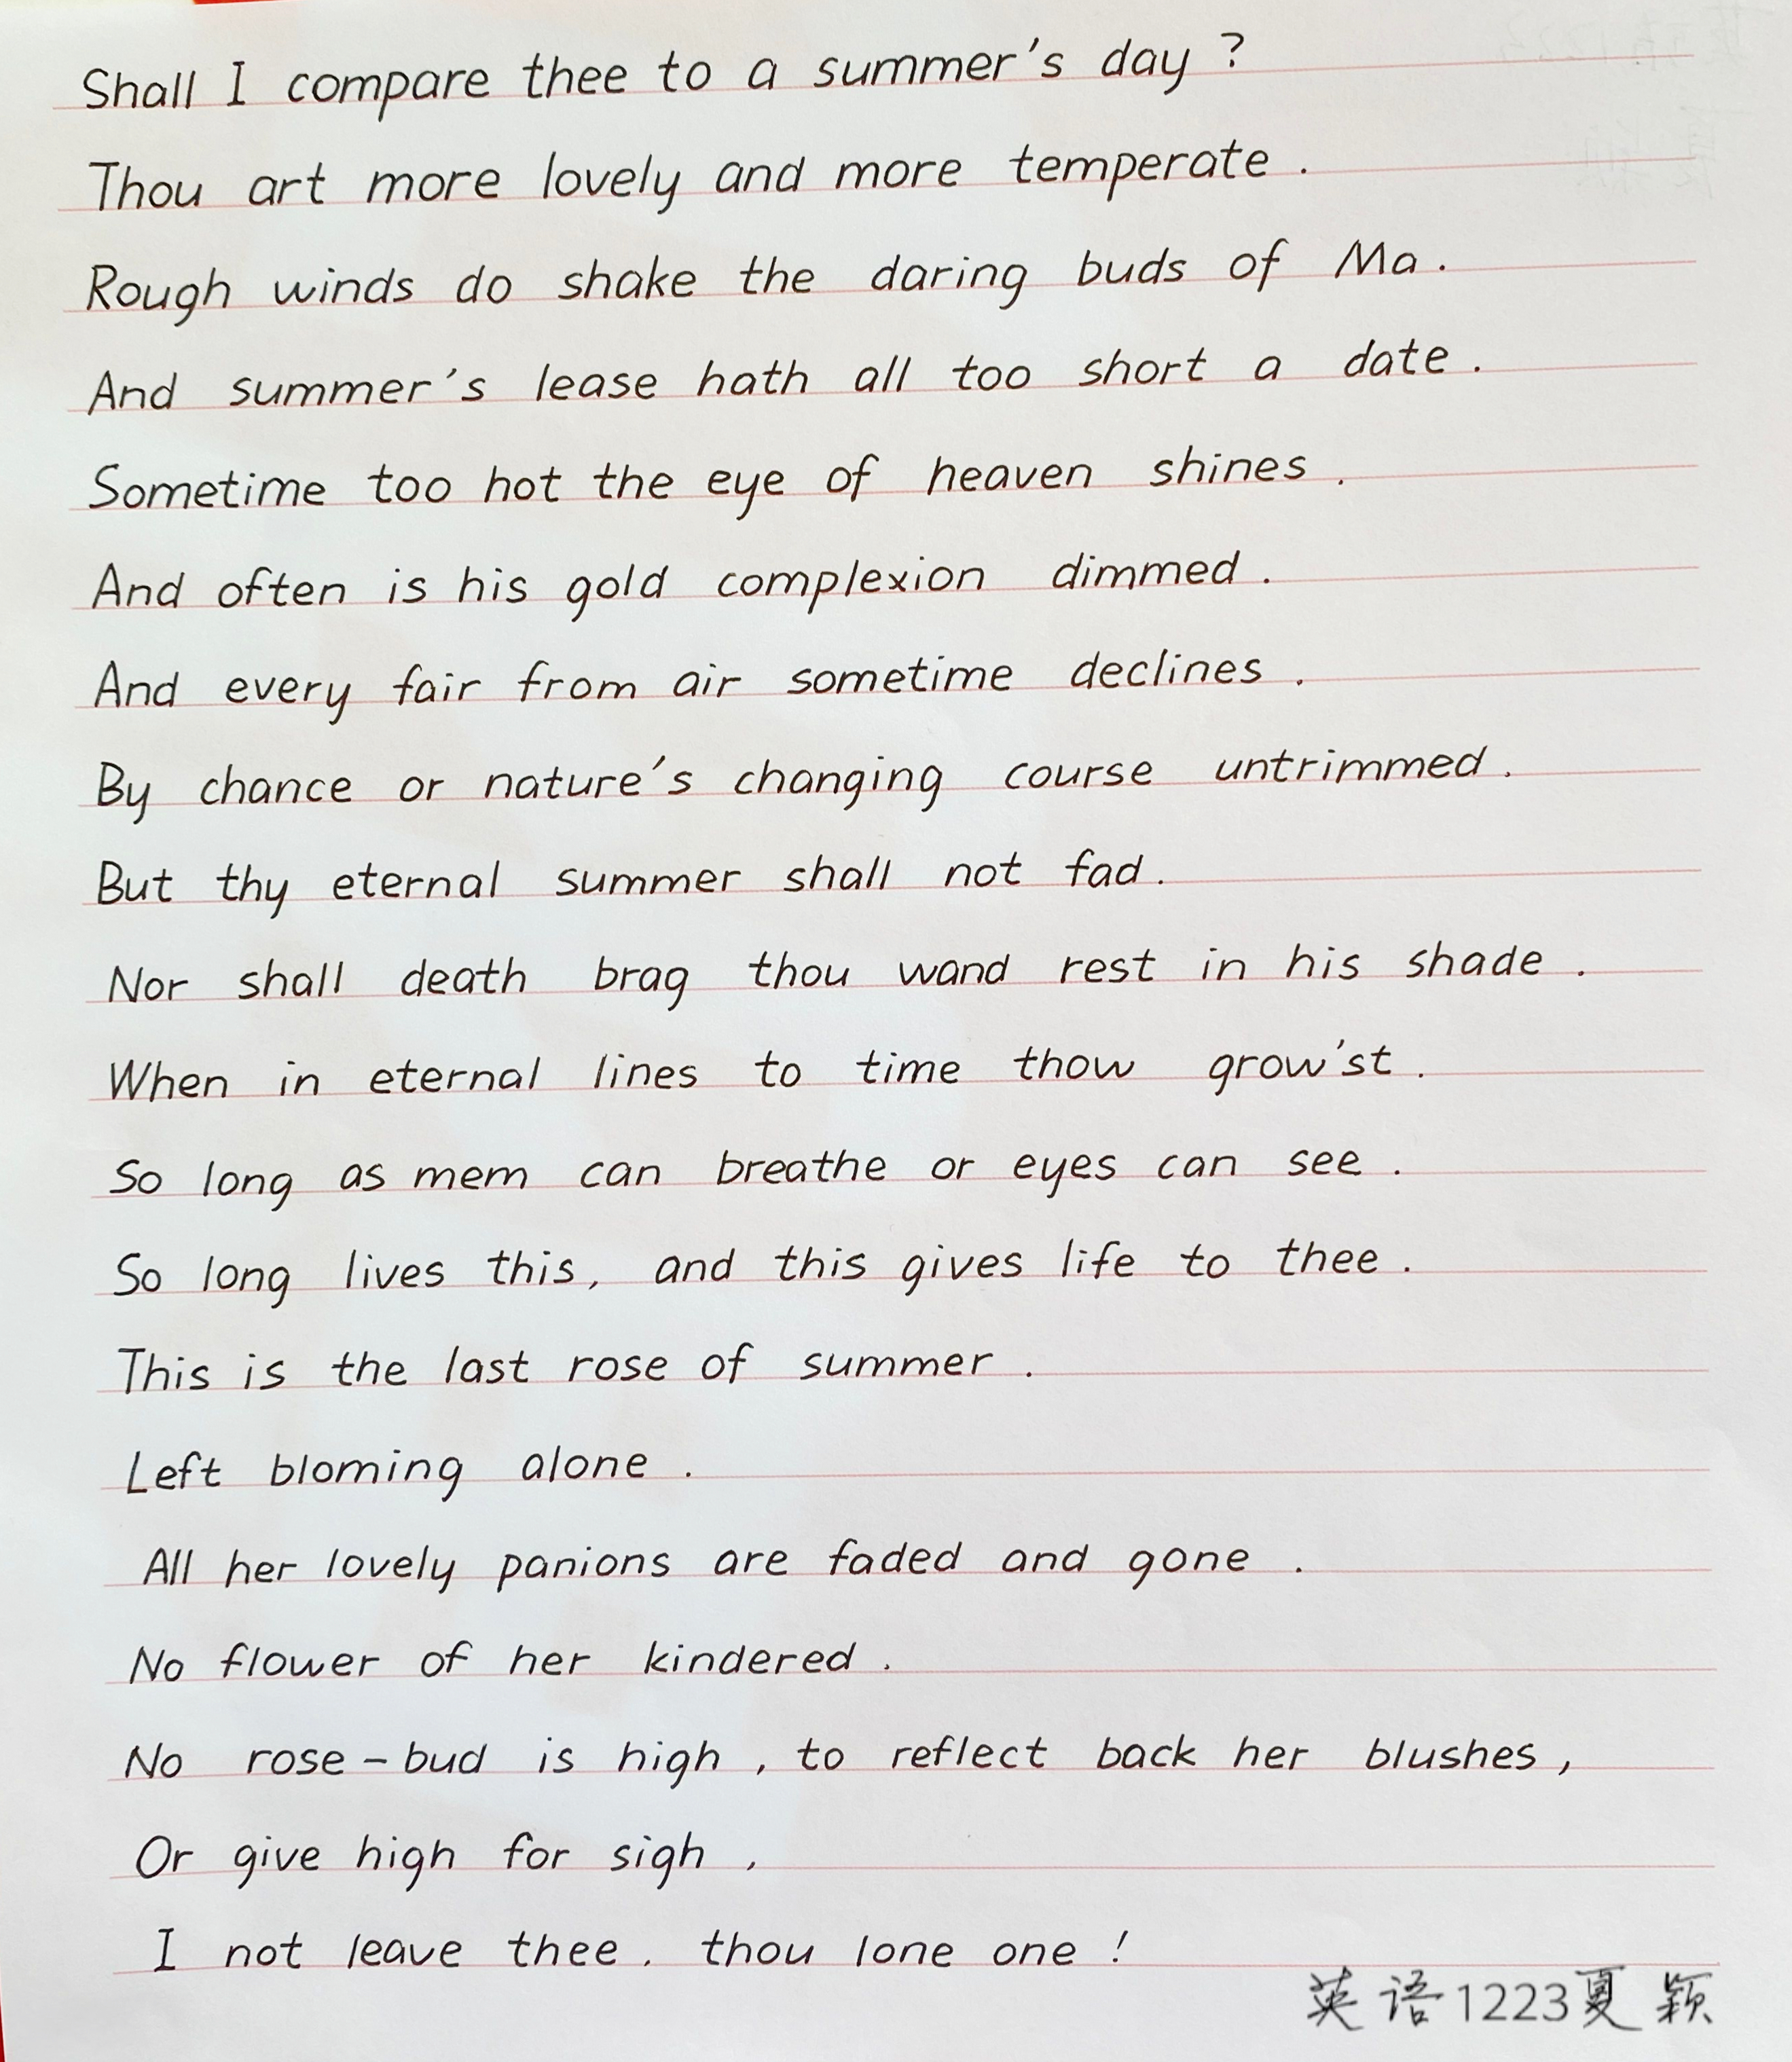 Shall I compare thee to a summer's day ?
Thou art more lovely and more temperate .
Rough winds do shake the daring buds of Ma .
And summer's lease hath all too short a date .
Sometime too hot the eye of heaven shines .
And often is his gold complexion dimmed .
And every fair from air sometime declines .
By chance or nature's changing course untrimmed .
But thy eternal summer shall not fad .
Nor shall death brag thou wand rest in his shade .
When in eternal lines to time thow grow'st .
So long as mem can breathe or eyes can see .
So long lives this, and this gives life to thee .
This is the last rose of summer .
Left bloming alone .
All her lovely panions are faded and gone .
No flower of her kindered .
No rose-bud is high , to reflect back her blushes ,
Or give high for sigh ,
I not leave thee . thou lone one !
英语1223夏颖